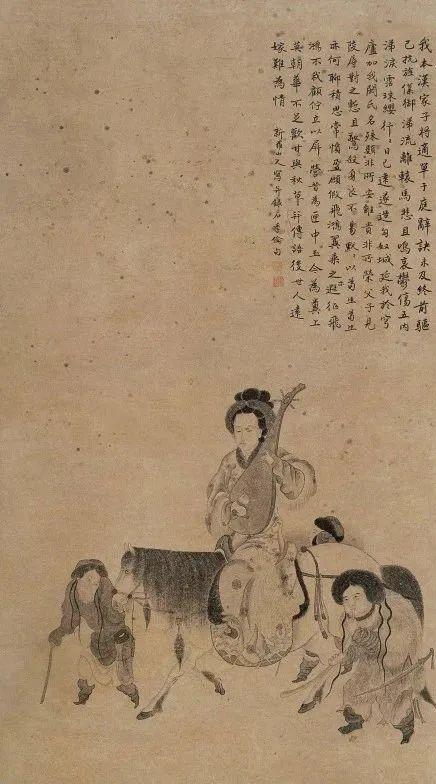 我本漢家子將適單于庭辭訣未及終前驅
已抗旌僕御涕流離轅馬悲且鳴哀鬱傷五內
涕淚霑珠纓行〻日已遠遂造匈奴城延我於穹
廬加我閼氏名殊類非所安雖貴非所榮父子見
陵辱對之慙且驚殺身良不易默〻以苟生苟生
亦何聊積思常憤盈願假飛鴻翼乘之遐征飛
鴻不我顧佇立以屏營昔為匣中玉今為糞上
英朝華不足歡甘與秋草并傳語後世人遠
嫁難為情 新羅山人寫并錄石季倫句